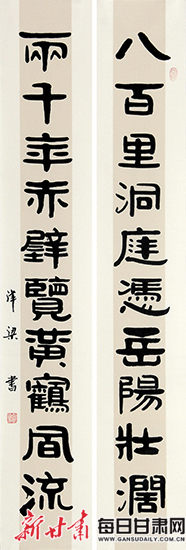 八百里洞庭憑岳陽壯濶
兩千年赤壁覽黃鶴風流
津梁書
新甘肃
每日甘肃网
WWW.GANSUDAILY.COM.CN